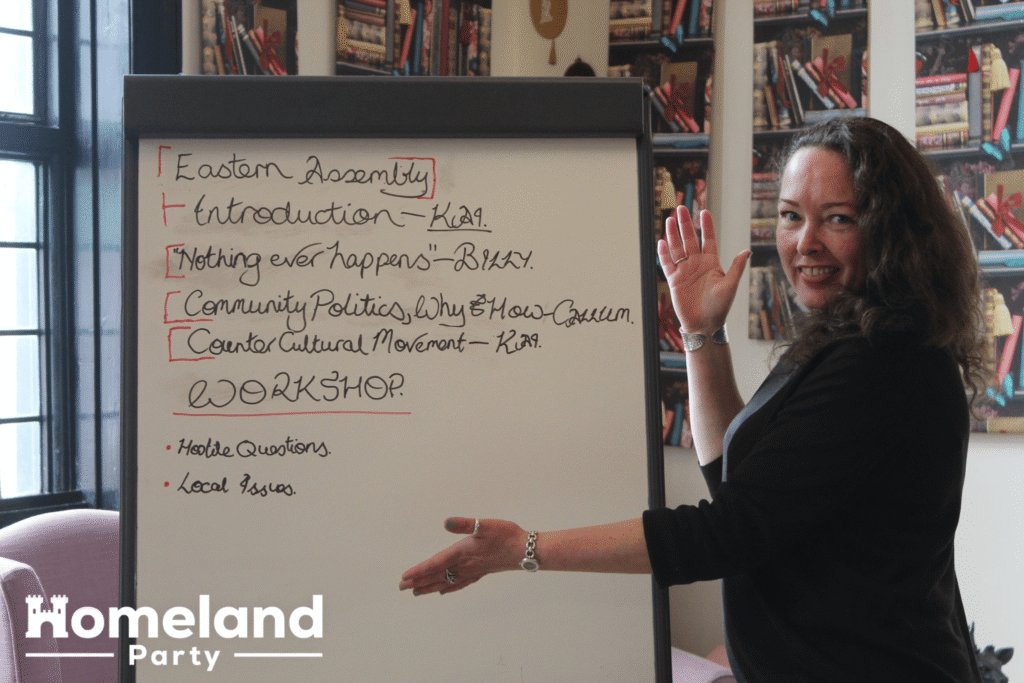 Eastern Assembly
Introduction – Kai.
"Nothing ever happens" – Billy.
Community Politics, Why & How – Callum.
Counter Cultural Movement – Kai.
WORKSHOP.
• Hostile Questions.
• Local Issues.
Homeland
Party